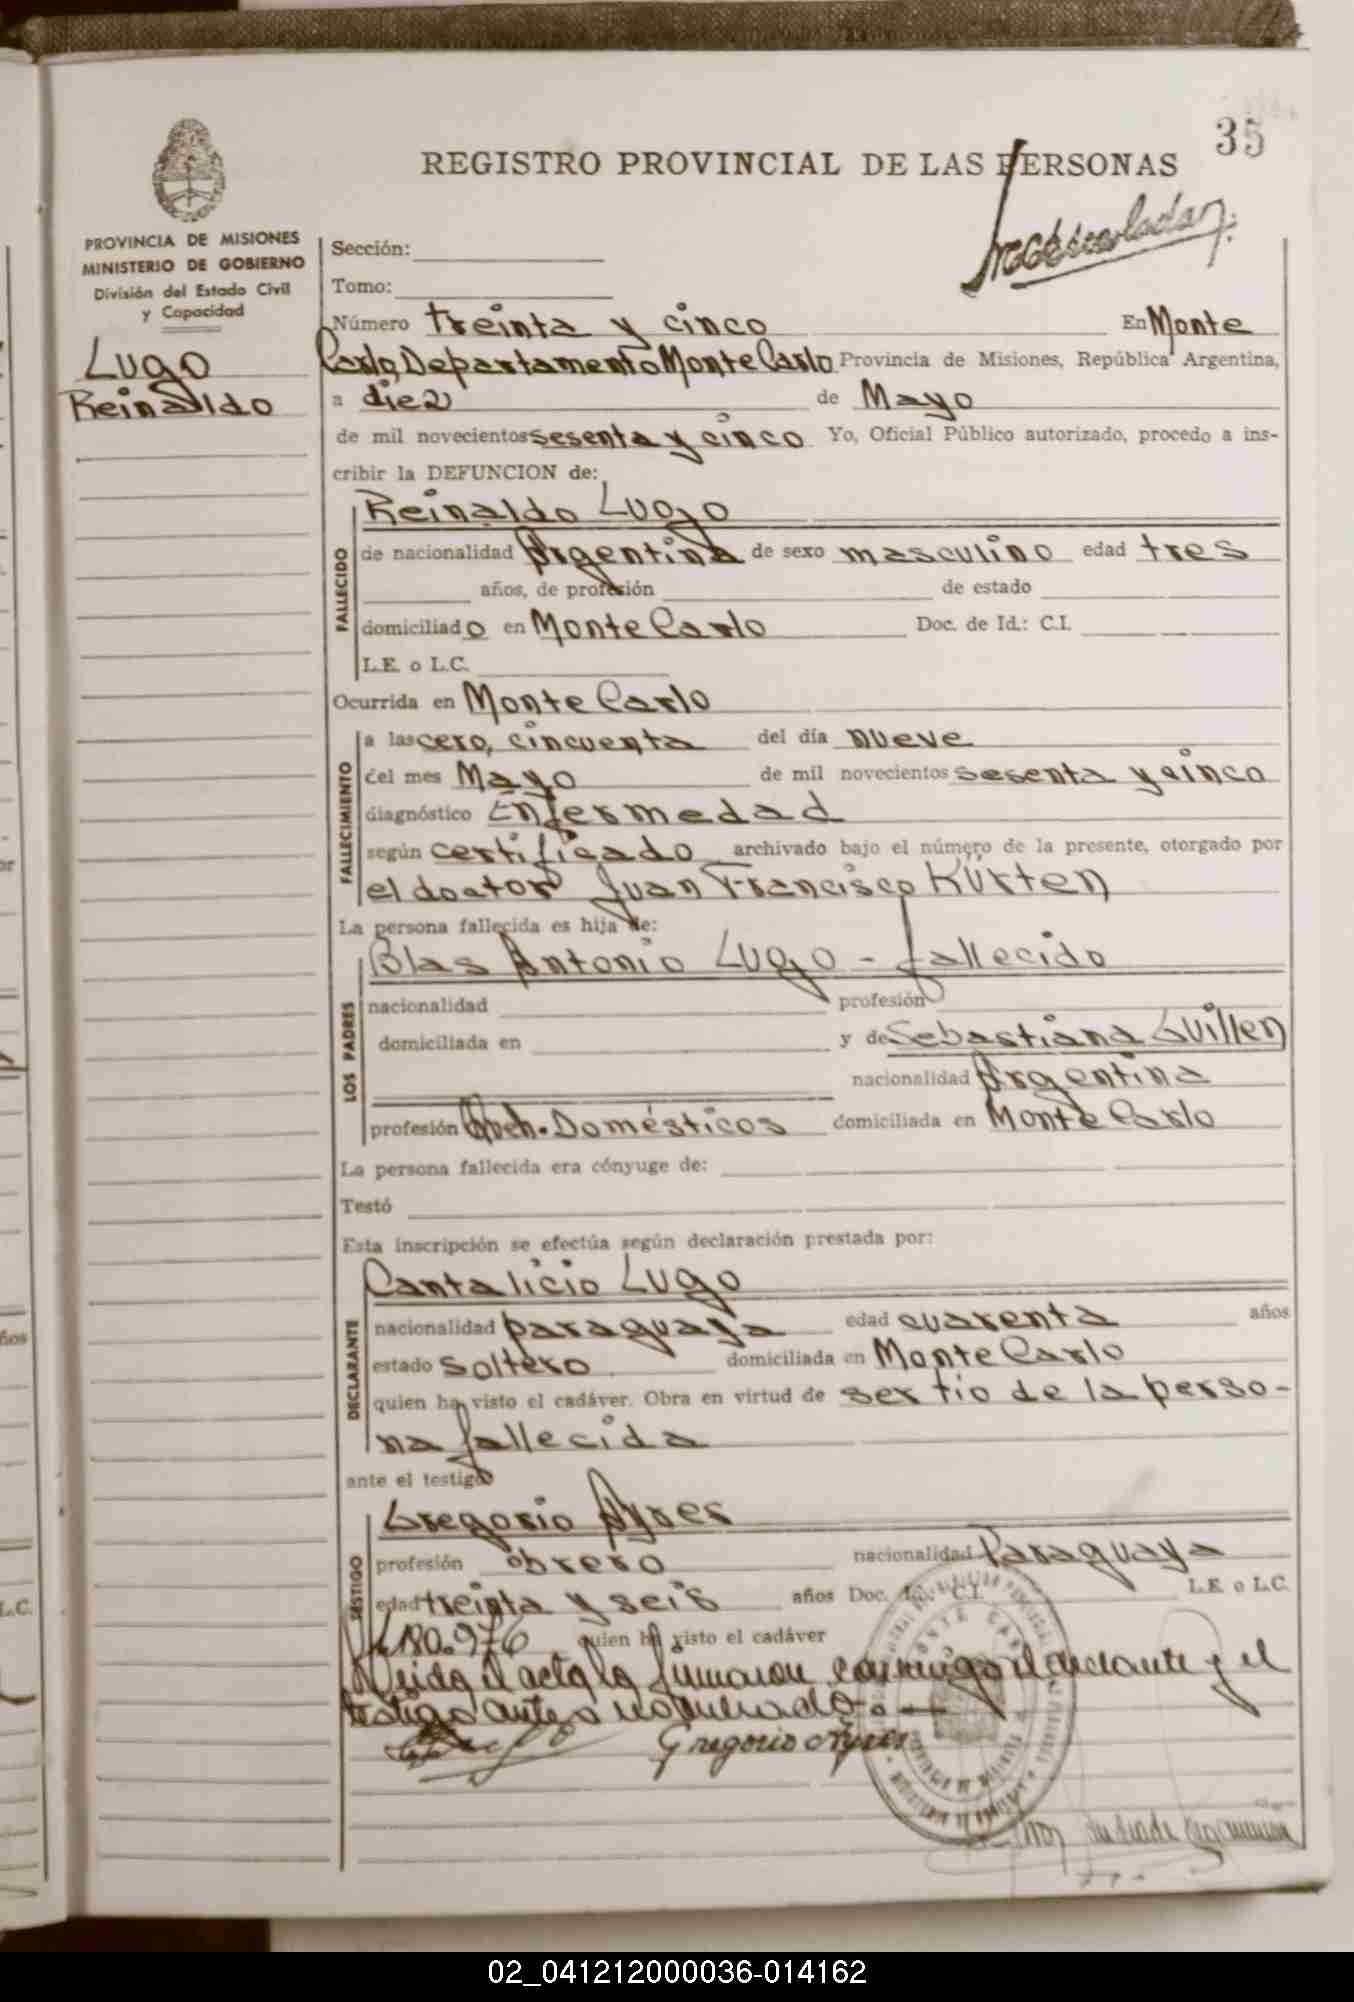 35
REGISTRO PROVINCIAL DE LAS PERSONAS
PROVINCIA DE MISIONES
MINISTERIO DE GOBIERNO
División del Estado Civil
y Capacidad
Lugo
Reinaldo
Sección:
Tomo:
Número treinta y cinco En Monte
Carlo, Departamento Monte Carlo Provincia de Misiones, República Argentina,
a diez de Mayo
de mil novecientos sesenta y cinco Yo, Oficial Público autorizado, procedo a ins-
cribir la DEFUNCION de:
Reinaldo Lugo
FALLECIDO
de nacionalidad Argentina de sexo masculino edad tres
años, de profesión de estado
domiciliado en Monte Carlo Doc. de Id.: C.I.
L.E. o L.C.
Ocurrida en Monte Carlo
FALLECIMIENTO
a las cero, cincuenta del día nueve
del mes Mayo de mil novecientos sesenta y cinco
diagnóstico Enfermedad
según certificado archivado bajo el número de la presente, otorgado por
el doctor Juan Francisco Kürten
La persona fallecida es hija de:
LOS PADRES
Blas Antonio Lugo - fallecido
nacionalidad profesión
domiciliada en y de Sebastiana Guillen
nacionalidad Argentina
profesión Queh. Domésticos domiciliada en Monte Carlo
La persona fallecida era cónyuge de:
Testó
Esta inscripción se efectúa según declaración prestada por:
DECLARANTE
Cantalicio Lugo
nacionalidad paraguaya edad cuarenta años
estado soltero domiciliada en Monte Carlo
quien ha visto el cadáver. Obra en virtud de ser tio de la perso-
na fallecida
ante el testigo
TESTIGO
Gregorio Ayres
profesión obrero nacionalidad Paraguaya
edad treinta y seis años Doc. Id.: C.I. L.E. o L.C.
180.976 quien ha visto el cadáver
Leida el acta la firmaron conmigo el declarante y el
testigo antes nombrado.
Gregorio Ayres
02_041212000036-014162